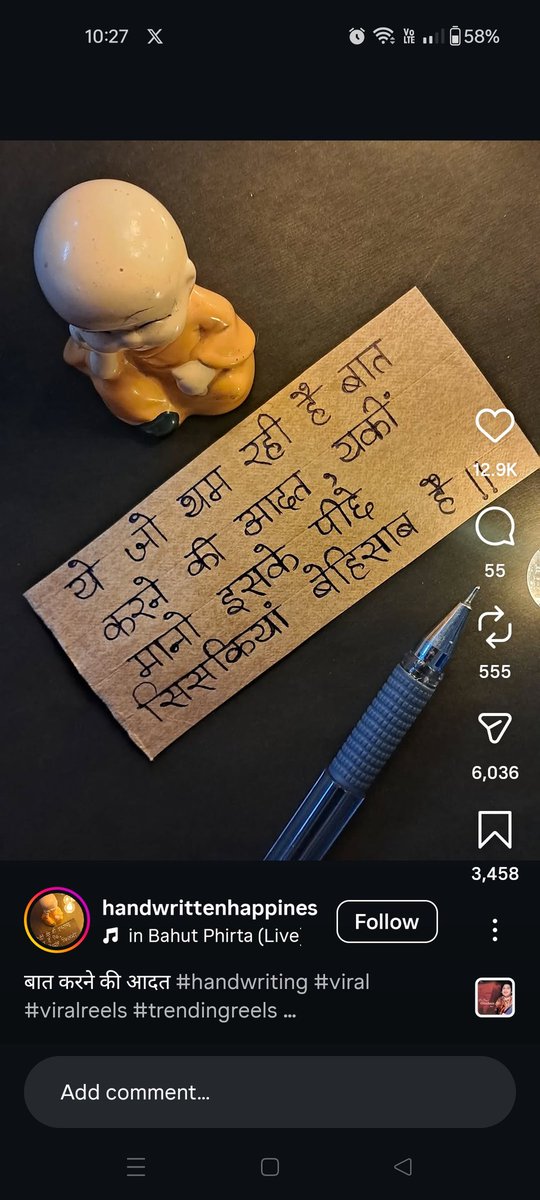 10:27 X Vo LTE 58%
ये जो थम रही है बात
करने की आदत, यकीं
मानो इसके पीछे
सिसकियां बेहिसाब है !!
12.9K
55
555
6,036
3,458
handwrittenhappines
Follow
in Bahut Phirta (Live)
बात करने की आदत #handwriting #viral
#viralreels #trendingreels ...
Add comment...